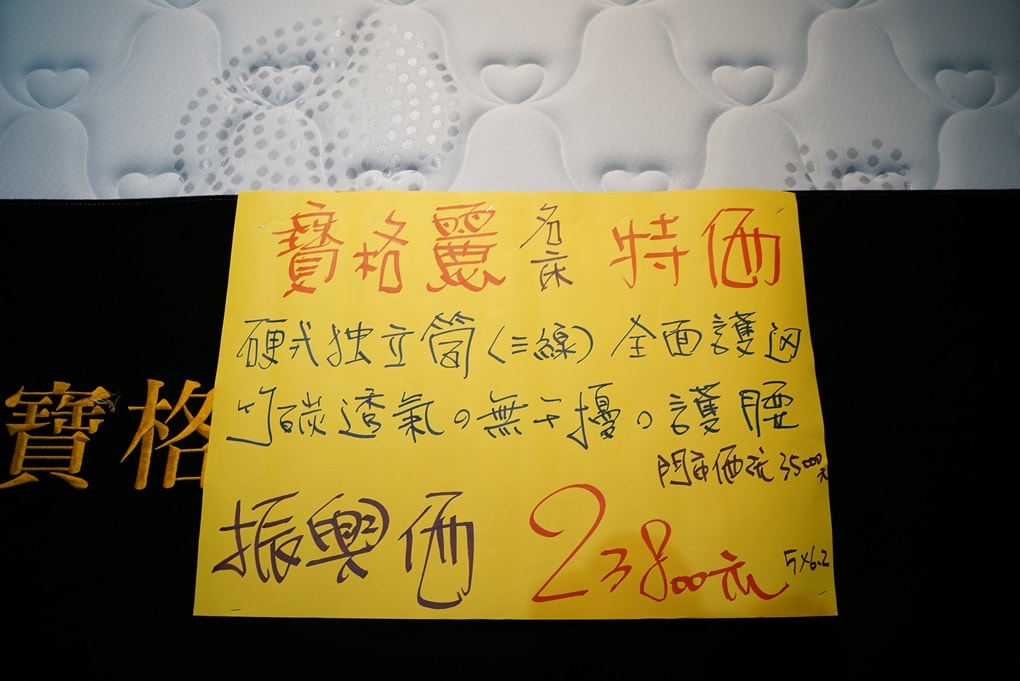 寶格麗 名床 特価
硬式独立筒(三線) 全面護边
竹碳透氣。無干擾。護腰
門市価值35000元
振興価 23800元 5×6.2
寶格